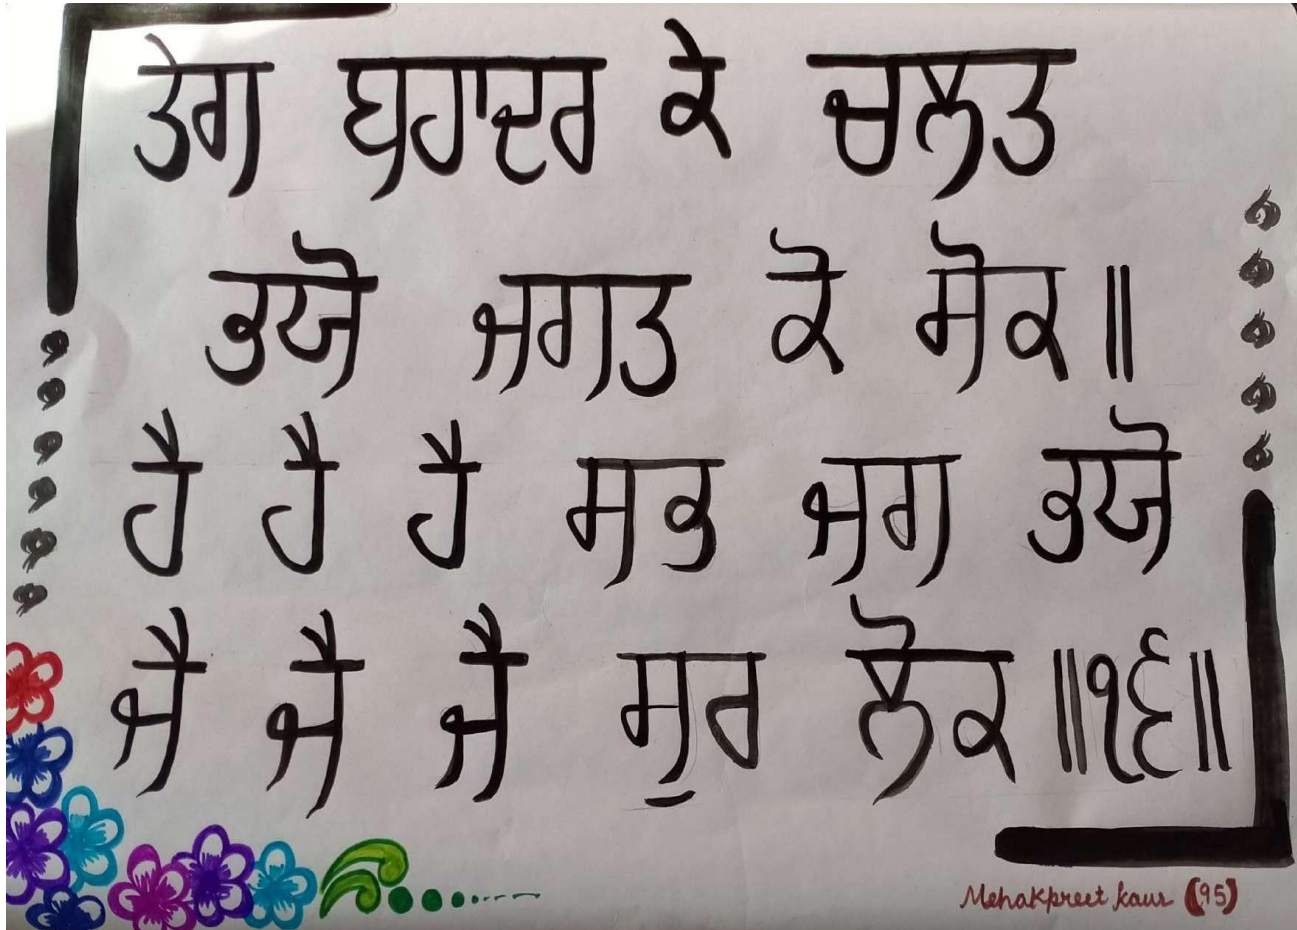 ਤੇਗ ਬਹਾਦਰ ਕੇ ਚਲਤ
ਭਯੋ ਜਗਤ ਕੋ ਸੋਕ ॥
ਹੈ ਹੈ ਹੈ ਸਭ ਜਗ ਭਯੋ
ਜੈ ਜੈ ਜੈ ਸੁਰ ਲੋਕ ॥੧੬॥
Mehakpreet kaur (95)